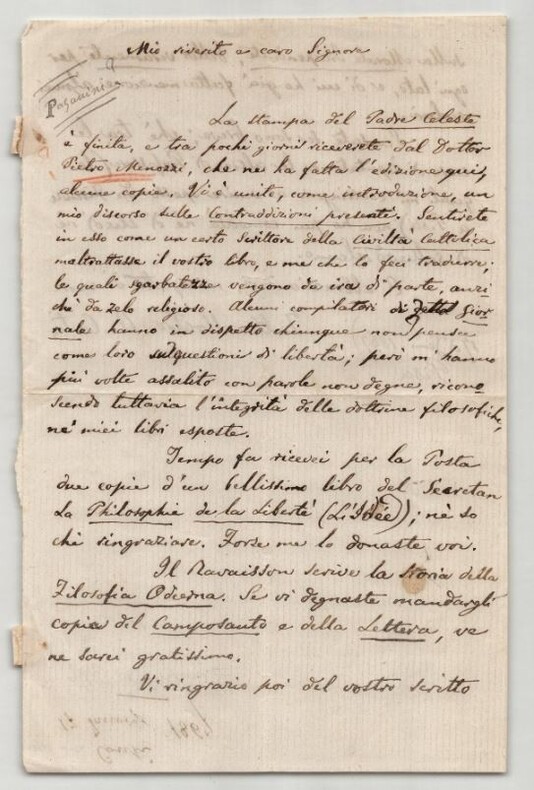 Mio riverito e caro Signore
a
Paganini
La stampa del Padre Celeste
è finita, e tra pochi giorni riceverete dal Dottor
Pietro Menozzi, che ne ha fatta l'edizione qui,
alcune copie. Vi è unito, come introduzione, un
mio discorso sulle Contraddizioni presenti. Sentirete
in esso come un certo Scrittore della Civiltà Cattolica
maltrattasse il vostro libro, e me che lo feci tradurre;
le quali sgarbatezze vengono da ira di parte, anzi
chè da zelo religioso. Alcuni compilatori di detto Gior
nale hanno in dispetto chiunque non pensa
come loro sulle questioni di libertà; però m'hanno
più volte assalito con parole non degne, ricono
scendo tuttavia l'integrità delle dottrine filosofiche,
ne' miei libri esposte.
Tempo fa ricevei per la Posta
due copie d'un bellissimo libro del Secretan
La Philosophie de la Liberté (L'Idée); nè so
chi ringraziare. Forse me lo donaste voi.
Il Ravaisson scrive la Storia della
Filosofia Odierna. Se vi degnaste mandargli
copia del Camposanto e della Lettera, ve
ne sarei gratissimo.
Vi ringrazio poi del vostro scritto